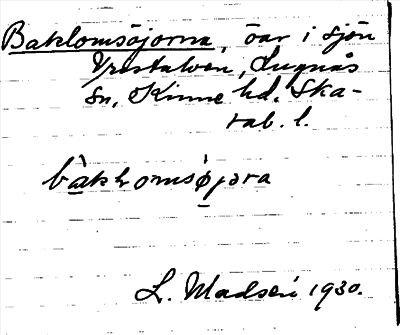 Baklomsöjorna, öar i sjön
Vristulven, Lugnås
sn, Kinne hd. Ska-
rab. l.
bakhomsøjora
L. Madsén 1930.